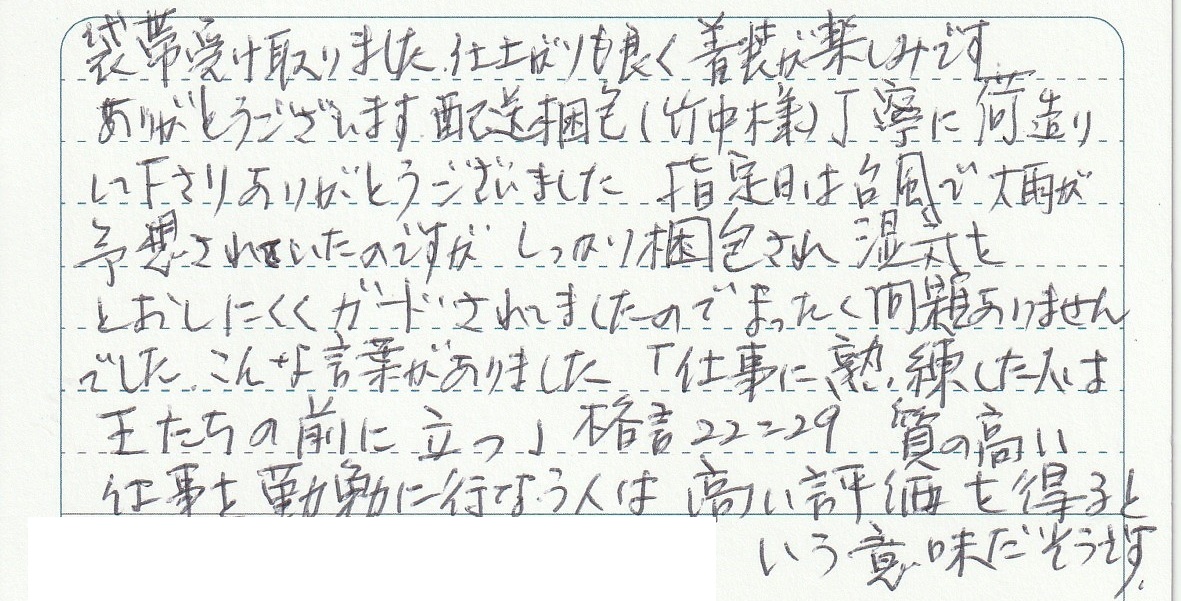 袋帯受け取りました。仕上がりも良く着装が楽しみです。
ありがとうございます。配送梱包(竹中様)丁寧に荷造り
して下さりありがとうございました。指定日は台風で大雨が
予想されていたのですが しっかり梱包され 湿気を
とおしにくくガードされてましたのでまったく問題ありません
でした。こんな言葉がありました「仕事に熟練した人は
王たちの前に立つ」格言22=29 質の高い
仕事を勤勉に行なう人は 高い評価を得ると
いう意味だそうです。